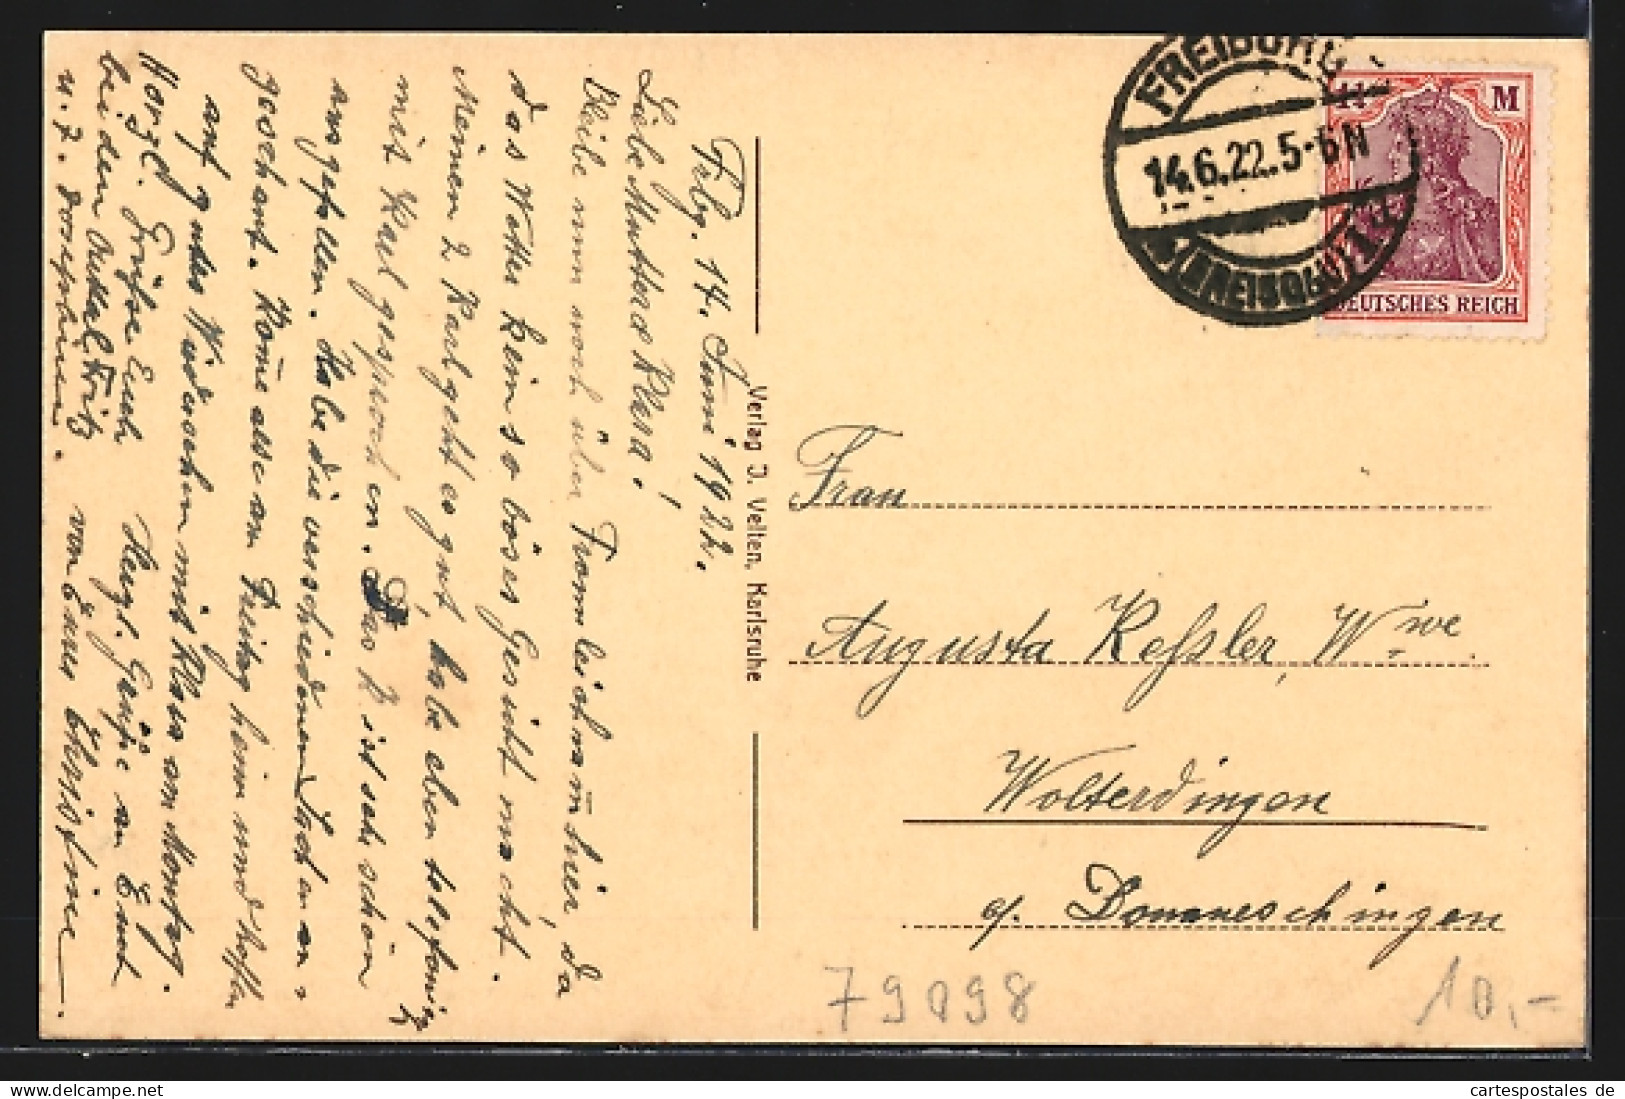 Fbg. 14. Juni 1922.
Liebe Mutter & Klara!
Bleibe nun noch über Fronleichnam hier, da
das Wetter kein so böses Gesicht macht.
Meinen 2 Karl geht es gut, habe eben telefonisch
mit Karl gesprochen. Das K ist sehr schön
ausgefallen. Habe die verschiedenen Sachen an-
geschaut. Kome also am Freitag heim und hoffe
auf gutes Wiedersehen mit Klara am Montag.
Herzl. Grüsse Euch Herzl. Grüße an Euch
bei den
u. 7. von Eurer Josefine
Frau
Augusta Keßler, Wwe
Wolterdingen
b/. Donaueschingen
Verlag J. Velten, Karlsruhe
FREIBURG
14.6.22.5-6N
(BREISGAU) 1
1¼ M
DEUTSCHES REICH
79098
10,-
TPK277
cartespostales de